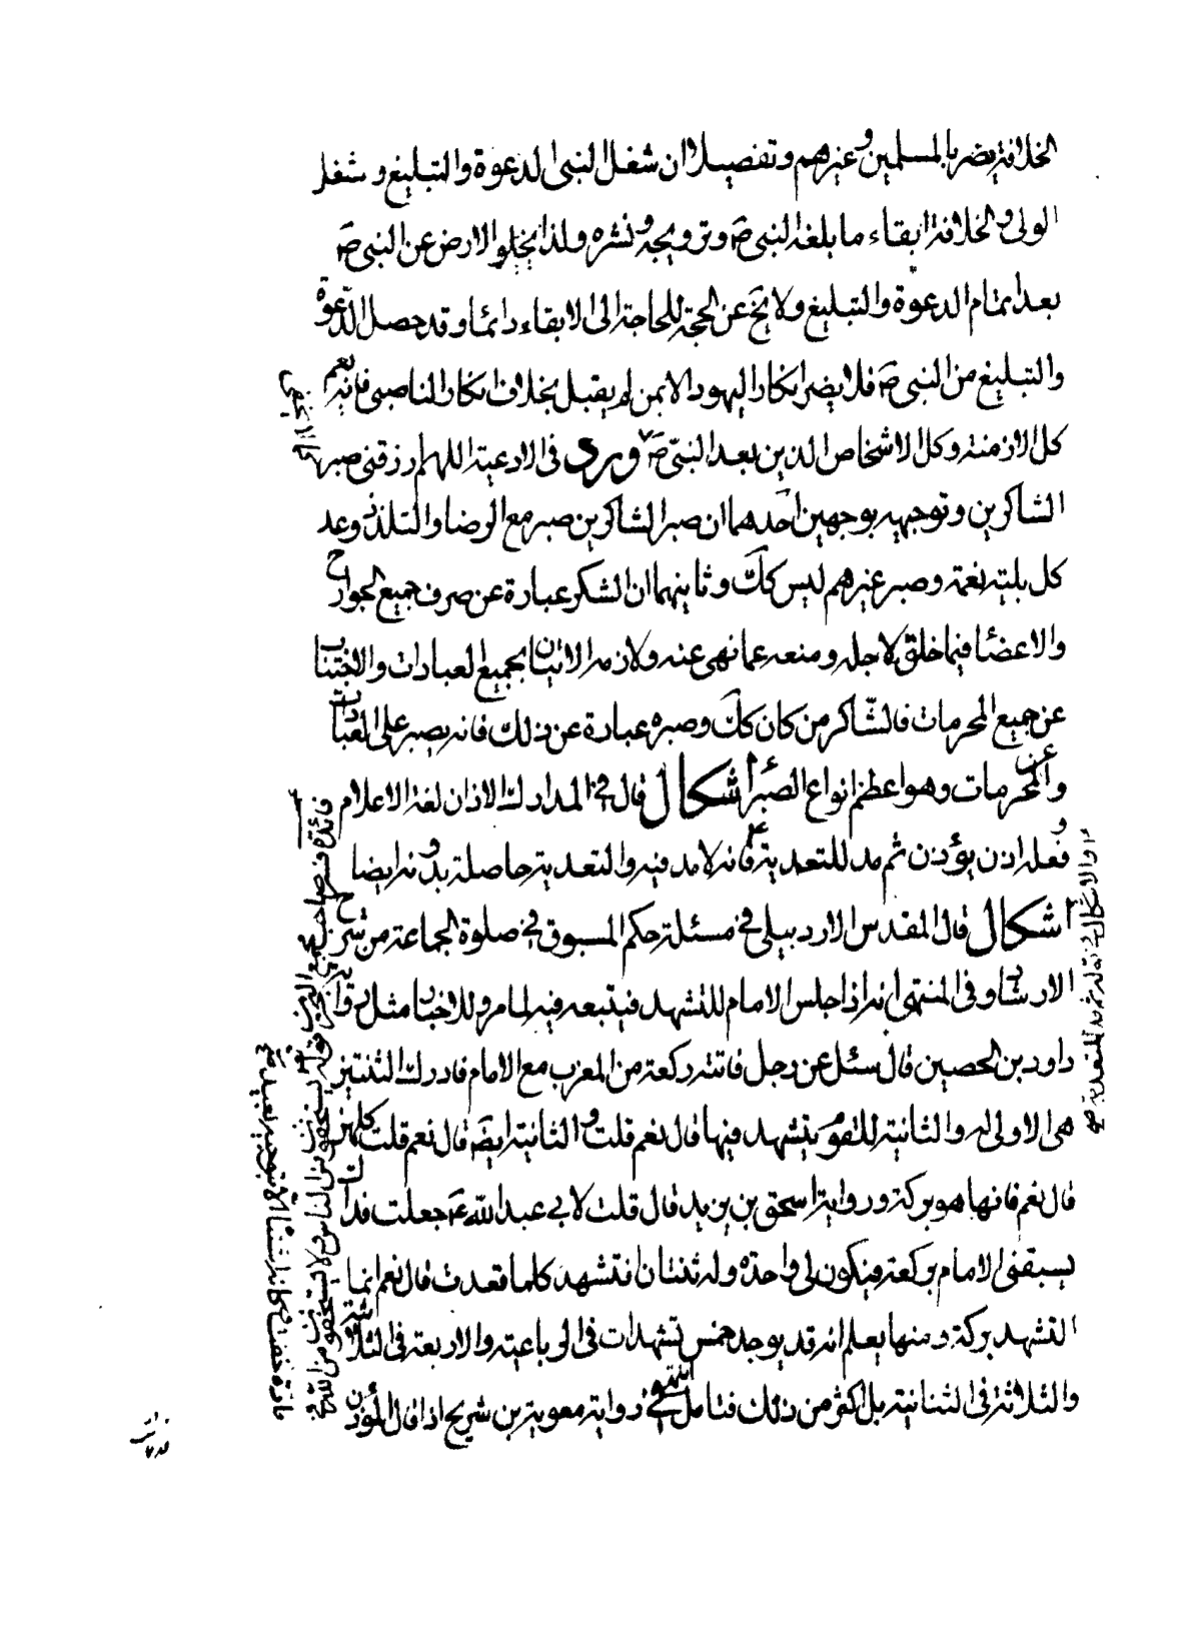 الخلافة يضر بالمسلمين وغيرهم وتفصيلا ان شغل النبى الدعوة والتبليغ وشغل
الولى والخلافة ابقاء ما بلغه النبى ص وترويجه ونشره ولذا يخلو الارض عن النبى ص
بعد اتمام الدعوة والتبليغ ولا يخ عن الحجة للحاجة الى الابقاء دائما وقد حصل الدعوة
والتبليغ من النبى ص فلا يضر انكار اليهود الا بمن لم يقبل بخلاف انكار الناصبى فانه يعم
كل الازمنة وكل الاشخاص الذين بعد النبى ص ورد فى الادعية اللهم ارزقنى صبر
الشاكرين وتوجيهه بوجهين احدهما ان صبر الشاكرين صبر مع الرضا والتلذذ وعد
كل بلية نعمة وصبر غيرهم ليس كك وثانيهما ان الشكر عبارة عن صرف جميع الجوارح
والاعضا فيما خلق لاجله ومنعه عما نهى عنه ولازمه الاتيان بجميع العبادات والاجتناب
عن جميع المحرمات فالشاكر من كان كك وصبره عبارة عن ذلك فانه يصبر على العبادات
وعن المحرمات وهو اعظم انواع الصبر اشكال قال في المدارك الاذان لغة الاعلام
وفعله اذن يؤذن ثم مد للتعدية فانه لا مد فيه والتعدية حاصلة بدونه ايضا
اشكال قال المقدس الاردبيلى في مسئلة حكم المسبوق في صلوة الجماعة من شرح
الارشاد وفى المنتهى انه اذا جلس الامام للتشهد فيتبعه فيه لما مر وللاخبار مثل رواية
داود بن الحصين قال سئل عن رجل فاتته ركعة من المغرب مع الامام فادرك الثنتين
هى الاولى له والثانية للقوم يتشهد فيها قال نعم قلت والثانية ايضا قال نعم قلت كلهن
قال نعم فانها هو بركة ورواية اسحق بن يزيد قال قلت لابي عبد الله ع جعلت فداك
يسبقنى الامام بركعة فيكون لى واحدة وله ثنتان افتشهد كلما قعدت قال نعم انما
التشهد بركة ومنها يعلم انه قد يوجد خمس تشهدات فى الرباعية والاربعة فى الثلاثية
والثلاثة فى الثنائية بل اكثر من ذلك فتامل انتهى وفي رواية معوية بن شريح اذا قال المؤذن